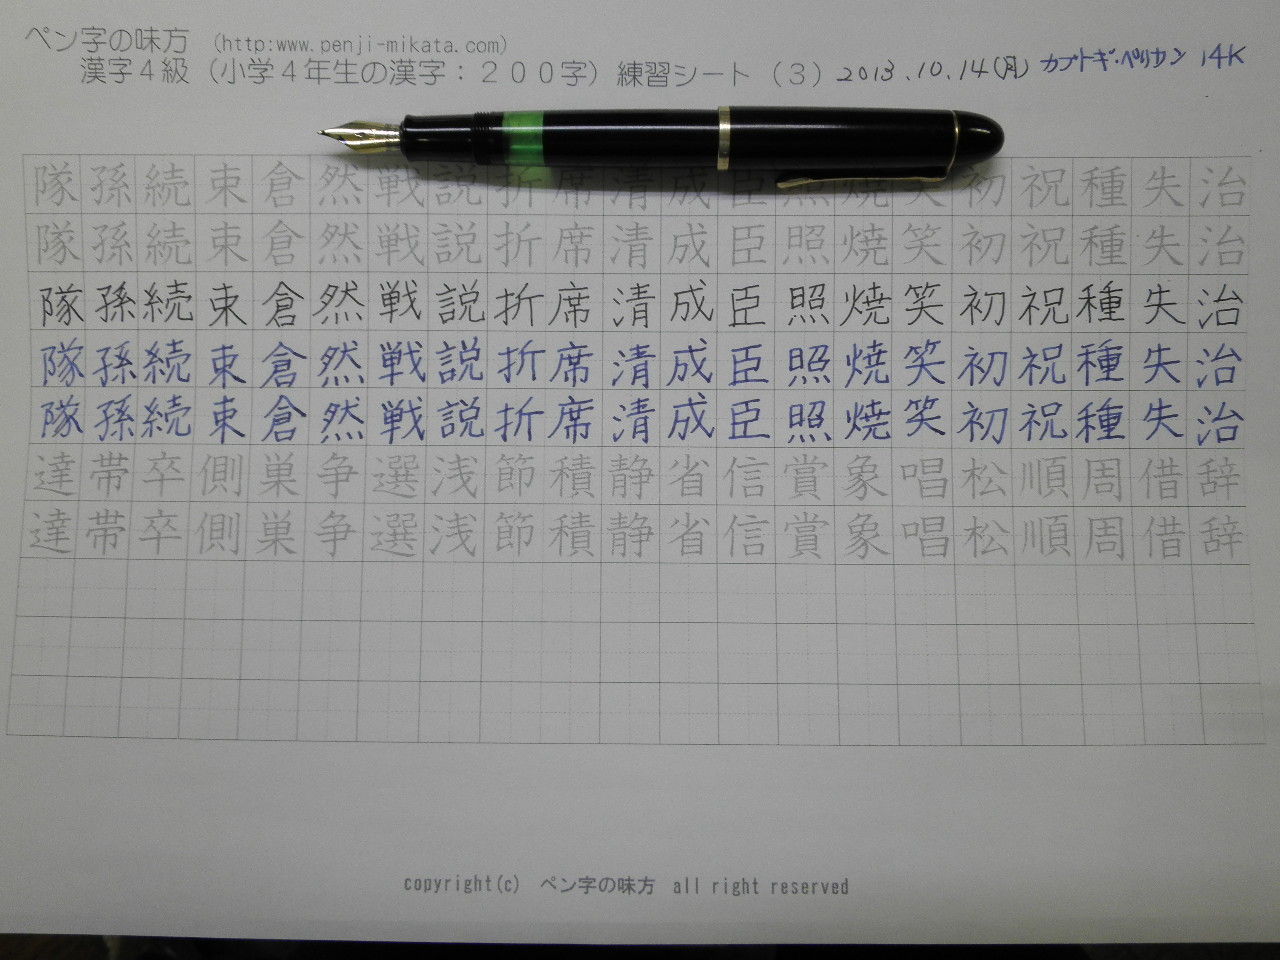 ペン字の味方 (http:www.penji-mikata.com)
漢字４級（小学４年生の漢字：２００字）練習シート（３） 2013.10.14(月) カブトギ・ペリカン 14K
隊孫続束倉然戦説折席清成臣照焼笑初祝種失治
隊孫続束倉然戦説折席清成臣照焼笑初祝種失治
隊孫続束倉然戦説折席清成臣照焼笑初祝種失治
隊孫続束倉然戦説折席清成臣照焼笑初祝種失治
隊孫続束倉然戦説折席清成臣照焼笑初祝種失治
達帯卒側巣争選浅節積静省信賞象唱松順周借辞
達帯卒側巣争選浅節積静省信賞象唱松順周借辞
copyright(c) ペン字の味方 all right reserved